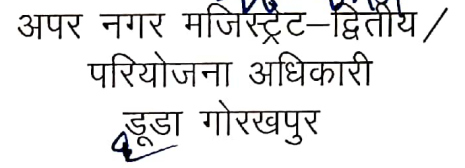 अपर नगर मजिस्ट्रेट–द्वितीय /
परियोजना अधिकारी
डूडा गोरखपुर